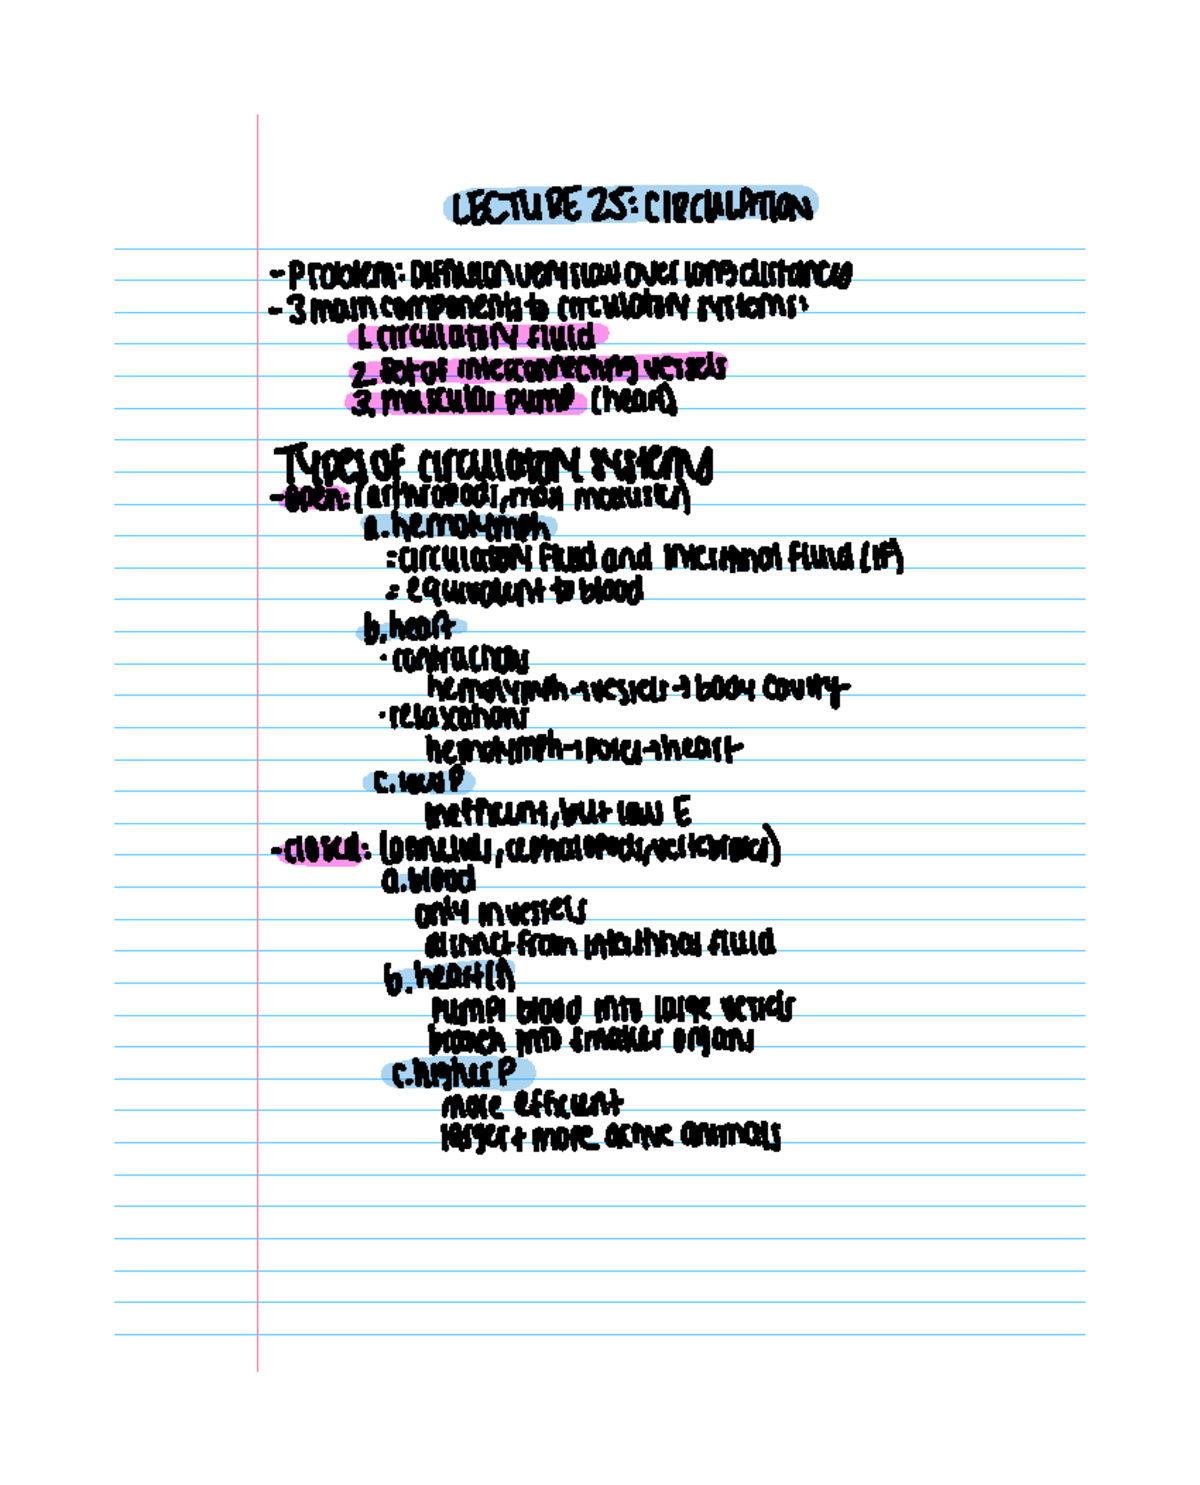 LECTURE 25: CIRCULATION
- Problem: Diffusion very slow over long distances
- 3 main components to circulatory systems:
1. circulatory fluid
2. Set of interconnecting vessels
3. muscular pump (heart)
Types of circulatory systems
- open: (arthropods, most mollusks)
a. hemolymph
= circulatory fluid and interstitial fluid (IF)
= equivalent to blood
b. heart
· contractions
hemolymph → vessels → body cavity
· relaxations
hemolymph → pores → heart
c. low P
inefficient, but low E
- closed: (annelids, cephalopods, vertebrates)
a. blood
only in vessels
distinct from interstitial fluid
b. heart(s)
pumps blood into large vessels
branch into smaller organs
c. higher P
more efficient
larger + more active animals